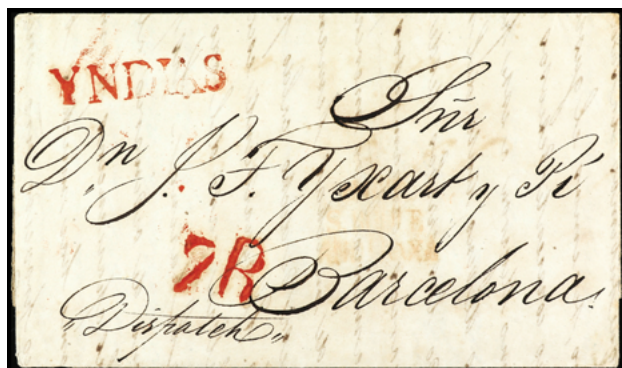 YNDIAS
Sñr
Dn J. F. Yxart y Pi
7R
Barcelona.
"Dispatch"